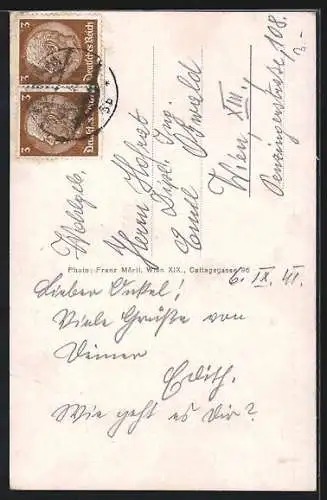 3
Deutsches Reich
3
Deutsches Reich
Wohlgeb.
Herrn Hofrat
Dipl. Ing.
Emil
Wien, XIII.
Penzingerstrasse, 108.
3.-
Photo: Franz Mörtl, Wien XIX., Cottagegasse 96
6. IX. 41.
Lieber Onkel!
Viele Grüße von
Deiner
Edith.
Wie geht es Dir?